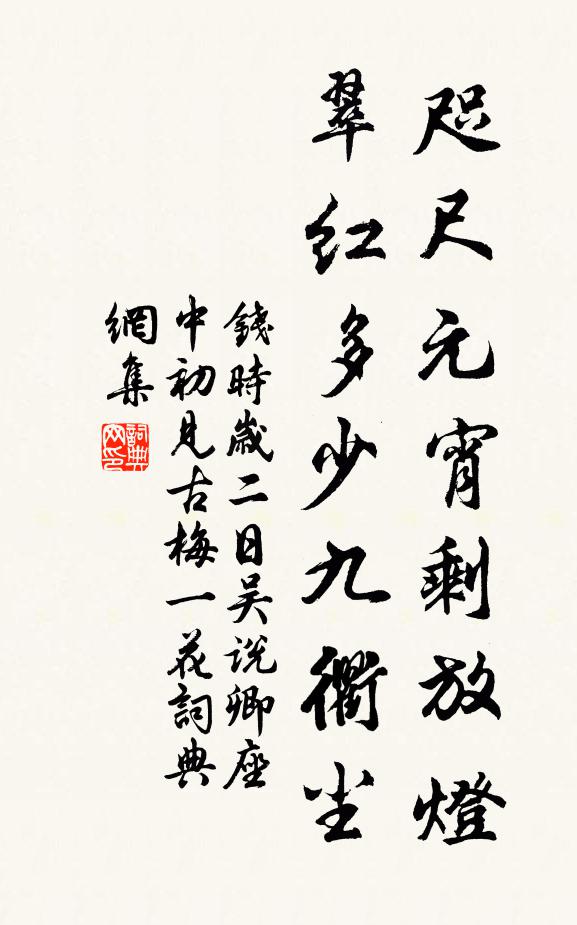 咫尺元宵剩放燈
翠紅多少九衢尘
錢時歲二日吴说卿座
中初見古梅一花詞典
網集
詞典
网印